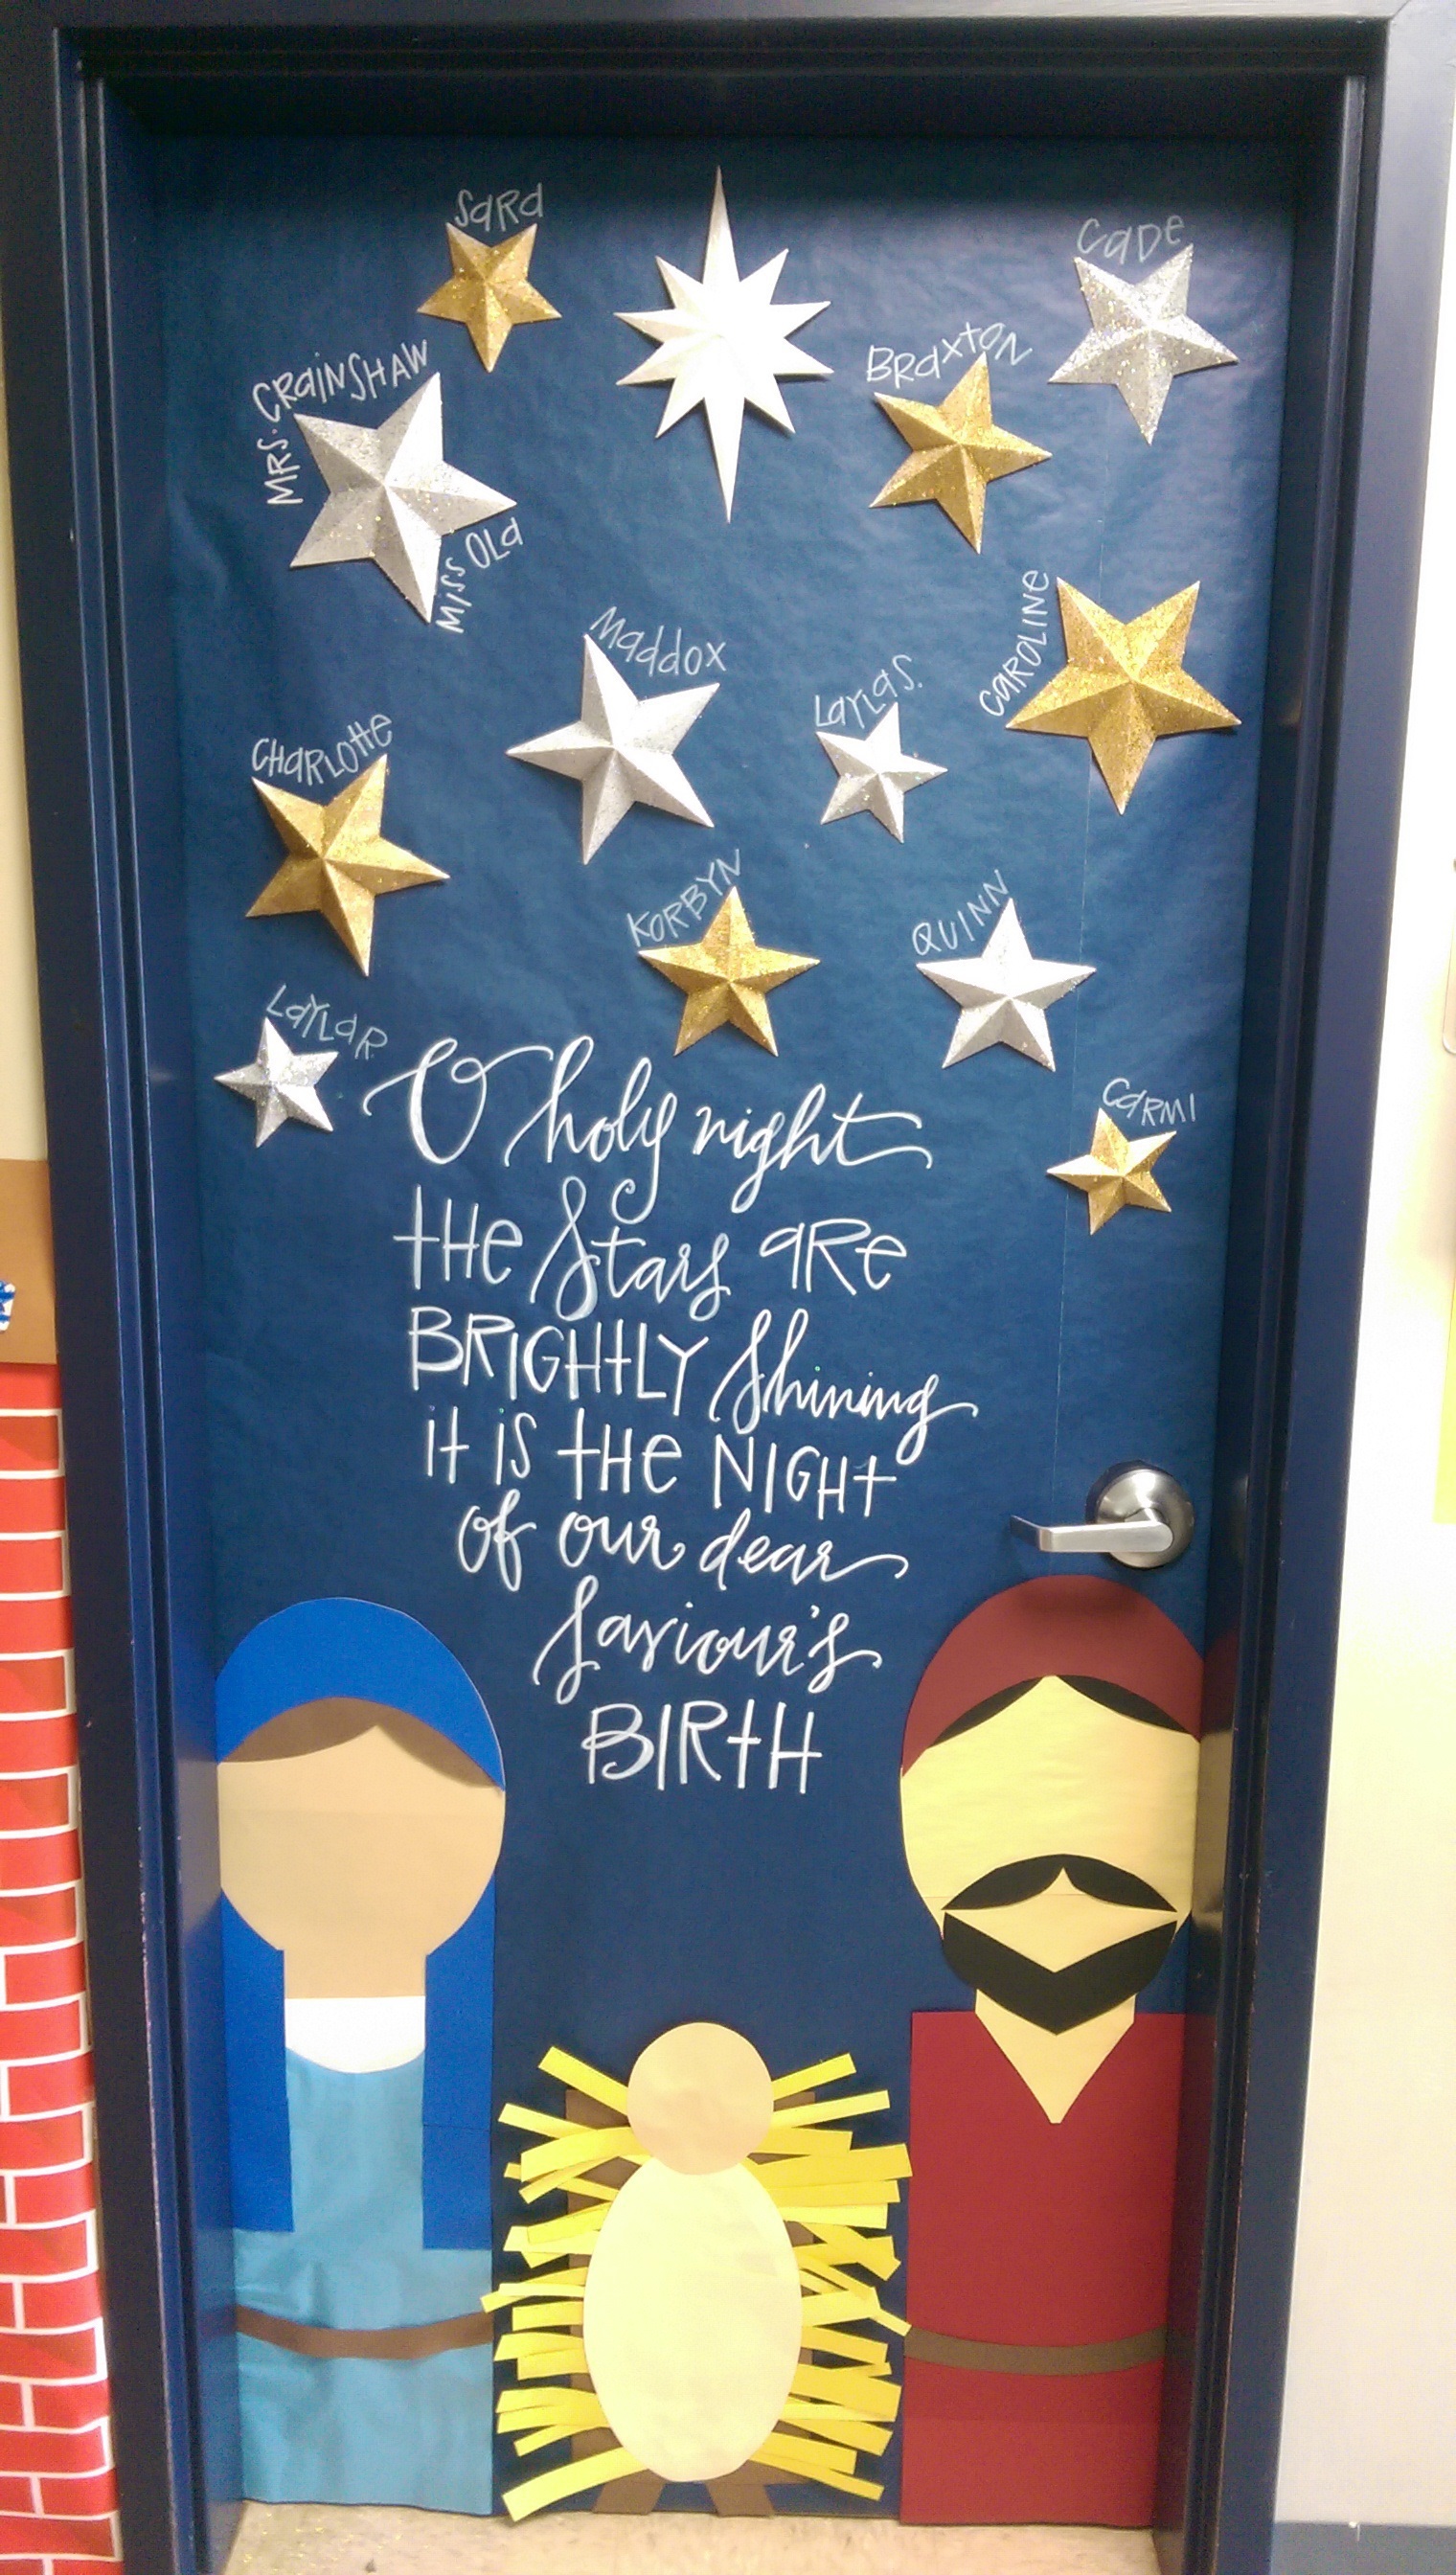 Sara
Cade
Mrs. Crainshaw
Braxton
Miss Ola
Caroline
Maddox
Layla S.
Charlotte
Korbyn
Quinn
Layla R.
Carmi
O holy night
the stars are
brightly shining
it is the night
of our dear
Saviour's
birth